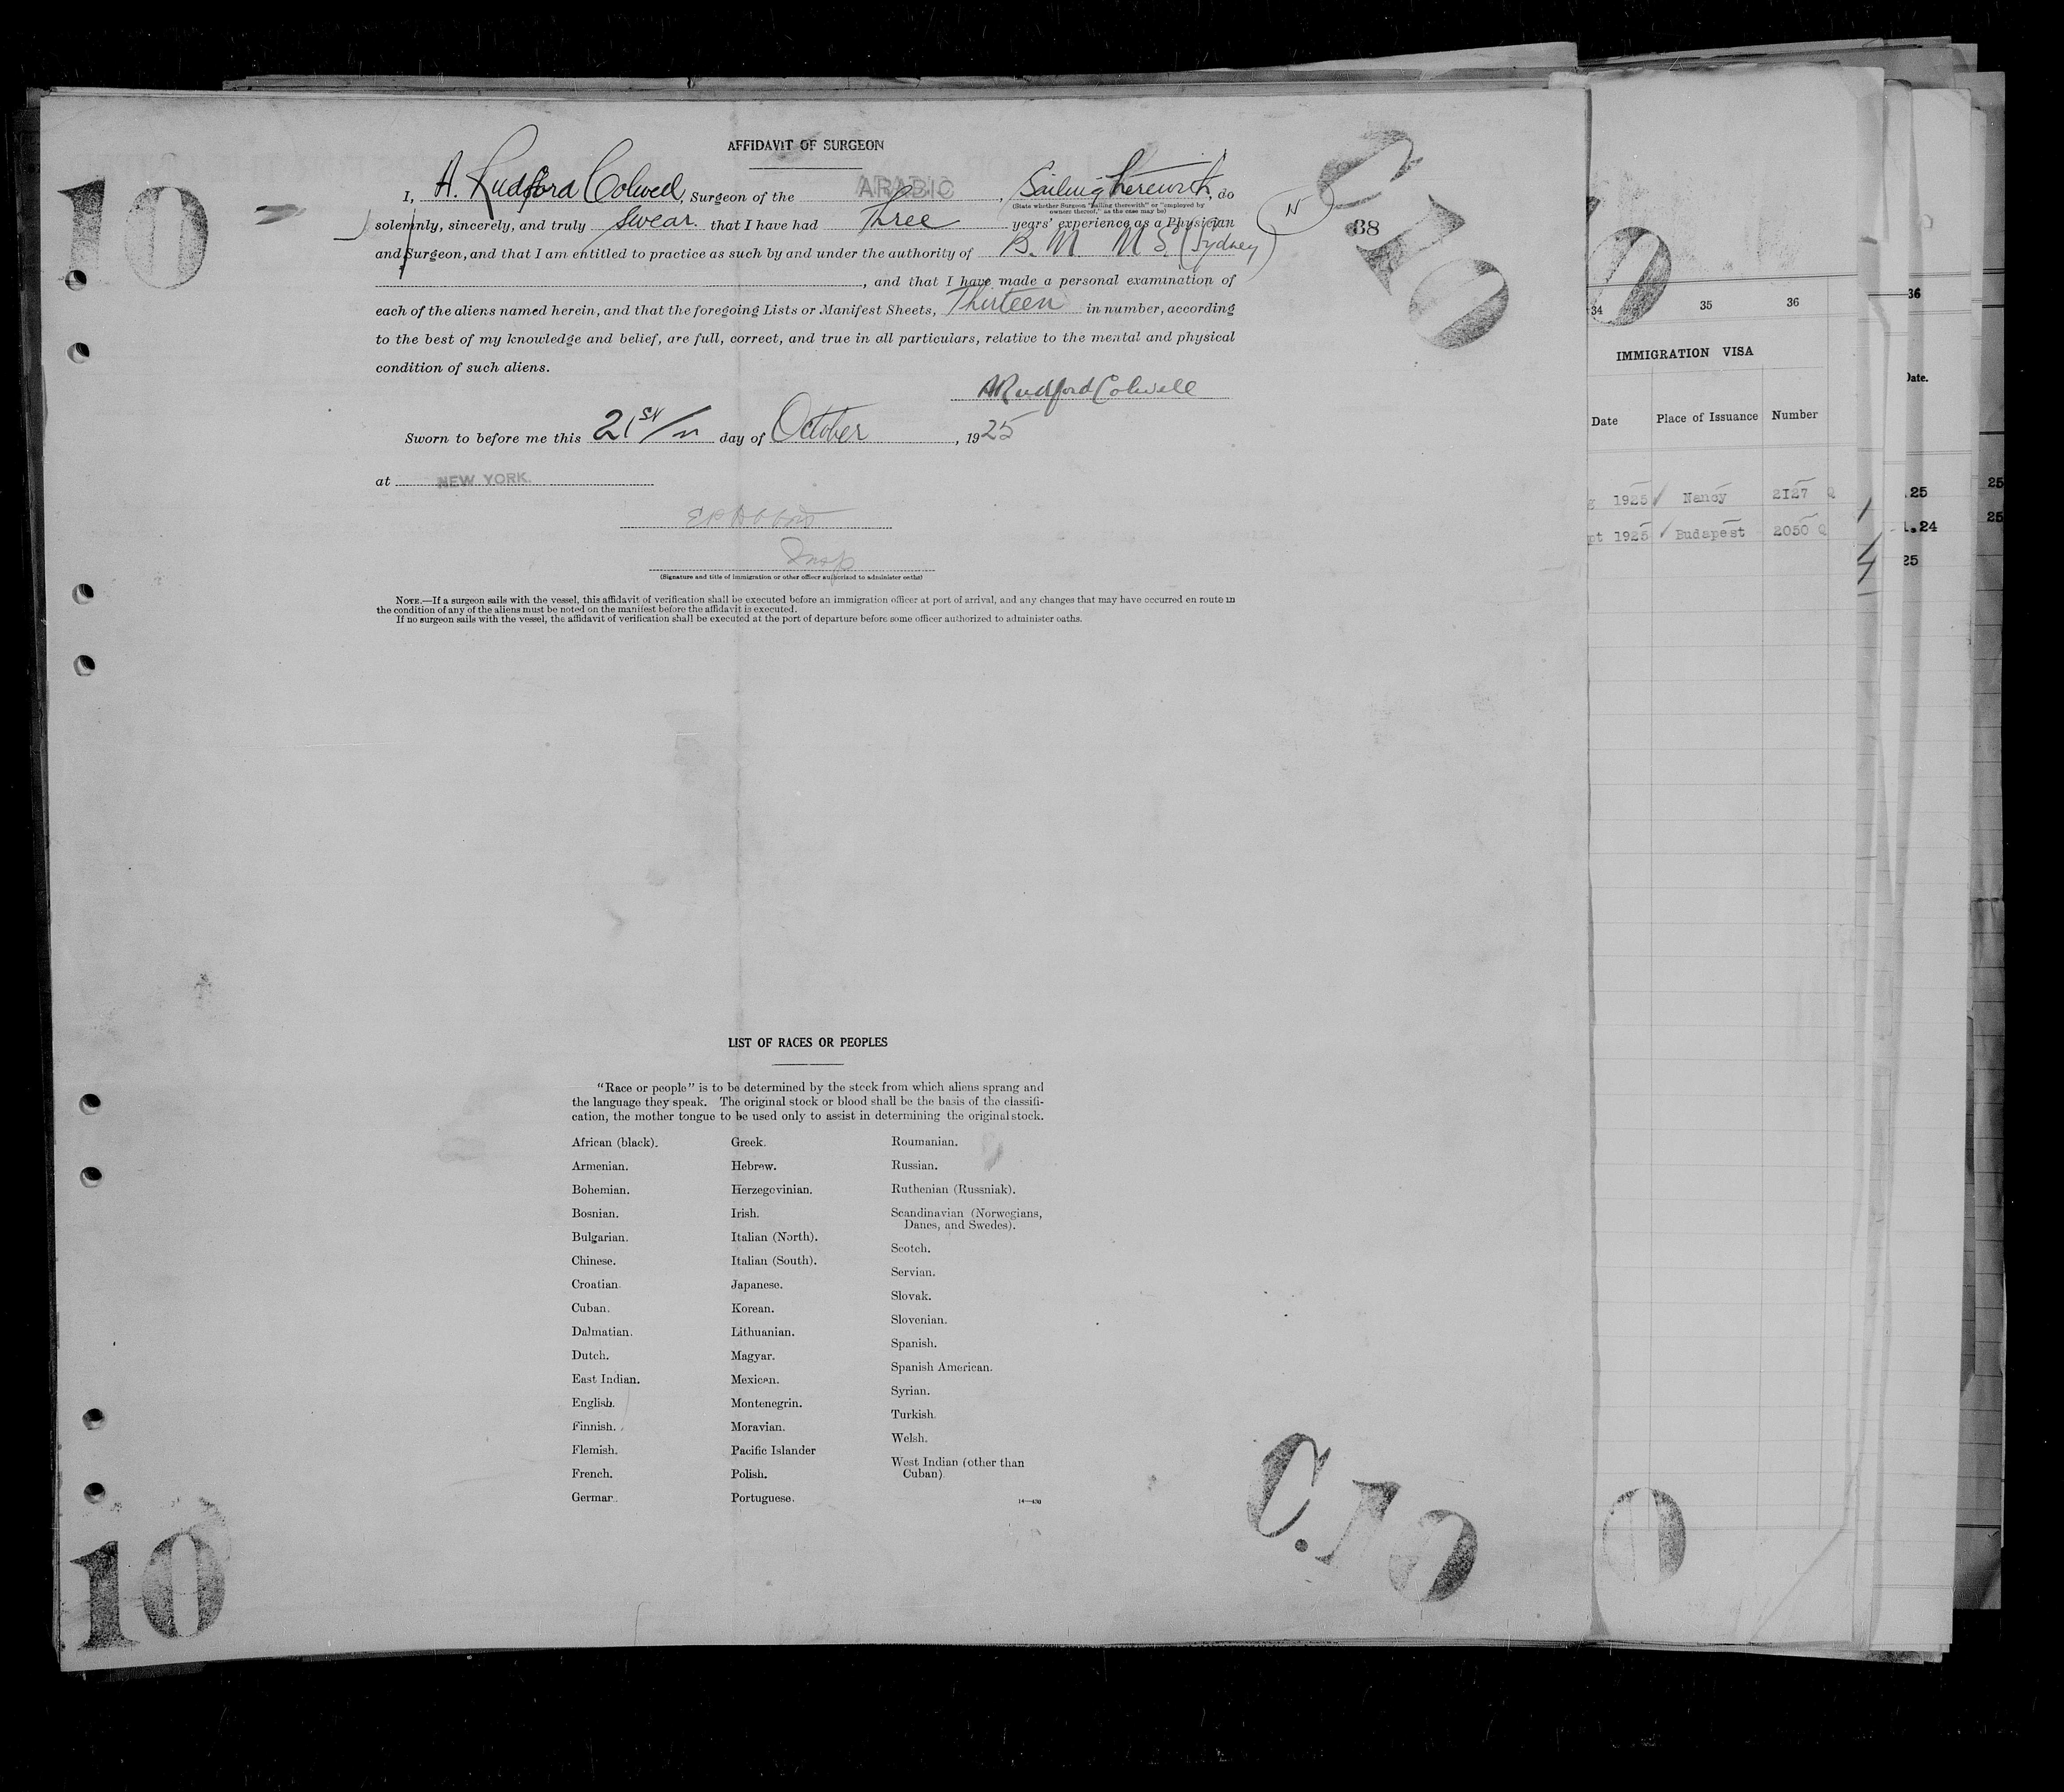 AFFIDAVIT OF SURGEON
10
C 10
I, A. Rudford Colwell, Surgeon of the ARABIC, Sailing therewith, do
(State whether Surgeon "sailing therewith" or "employed by
owners thereof," as the case may be)
N
38
solemnly, sincerely, and truly swear that I have had Three years' experience as a Physician
and Surgeon, and that I am entitled to practice as such by and under the authority of B. M. M. S. (Sydney)
, and that I have made a personal examination of
each of the aliens named herein, and that the foregoing Lists or Manifest Sheets, Thirteen in number, according
to the best of my knowledge and belief, are full, correct, and true in all particulars, relative to the mental and physical
condition of such aliens.
A Rudford Colwell
Sworn to before me this 21st day of October, 1925
at NEW YORK.
Insp
(Signature and title of immigration or other officer authorized to administer oaths)
NOTE.—If a surgeon sails with the vessel, this affidavit of verification shall be executed before an immigration officer at port of arrival, and any changes that may have occurred en route in
the condition of any of the aliens must be noted on the manifest before the affidavit is executed.
If no surgeon sails with the vessel, the affidavit of verification shall be executed at the port of departure before some officer authorized to administer oaths.
LIST OF RACES OR PEOPLES
"Race or people" is to be determined by the stock from which aliens sprang and
the language they speak. The original stock or blood shall be the basis of the classifi-
cation, the mother tongue to be used only to assist in determining the original stock.
African (black).
Armenian.
Bohemian.
Bosnian.
Bulgarian.
Chinese.
Croatian.
Cuban.
Dalmatian.
Dutch.
East Indian.
English.
Finnish.
Flemish.
French.
German.
Greek.
Hebrew.
Herzegovinian.
Irish.
Italian (North).
Italian (South).
Japanese.
Korean.
Lithuanian.
Magyar.
Mexican.
Montenegrin.
Moravian.
Pacific Islander
Polish.
Portuguese.
Roumanian.
Russian.
Ruthenian (Russniak).
Scandinavian (Norwegians,
Danes, and Swedes).
Scotch.
Servian.
Slovak.
Slovenian.
Spanish.
Spanish American.
Syrian.
Turkish.
Welsh.
West Indian (other than
Cuban)
14—430
10
C.10
0
34 35 36
IMMIGRATION VISA
Date Place of Issuance Number
1925 Nancy 2127 Q
pt 1925 Budapest 2050 Q
0
36
Date.
25
.24
25
25
25